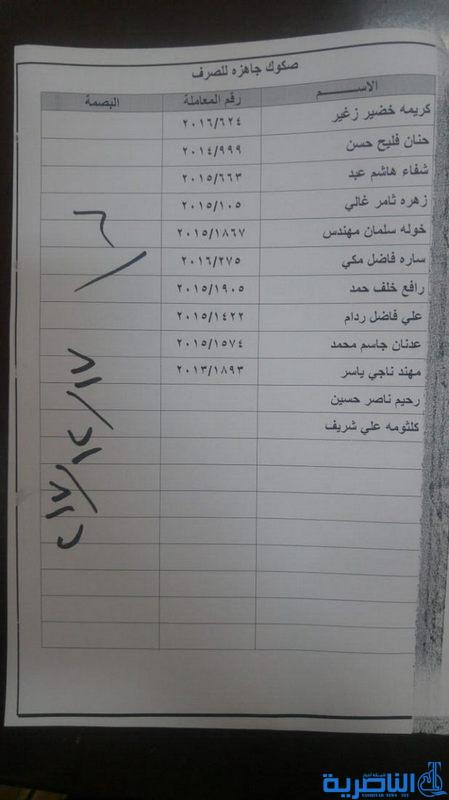 صكوك جاهزه للصرف
الاســـــم رقم المعاملة البصمة
كريمه خضير زغير ٢٠١٦/٦٢٤
حنان فليح حسن ٢٠١٤/٩٩٩
شفاء هاشم عبد ٢٠١٥/٦٦٣
زهره ثامر غالي ٢٠١٥/١٠٥
خوله سلمان مهندس ٢٠١٥/١٨٦٧
ساره فاضل مكي ٢٠١٦/٢٧٥
رافع خلف حمد ٢٠١٥/١٩٠٥
علي فاضل ردام ٢٠١٥/١٤٢٢
عدنان جاسم محمد ٢٠١٥/١٥٧٤
مهند ناجي ياسر ٢٠١٣/١٨٩٣
رحيم ناصر حسين
كلثومه علي شريف
شبكة أخبار
الناصرية
NASIRIYAH NEWS NET